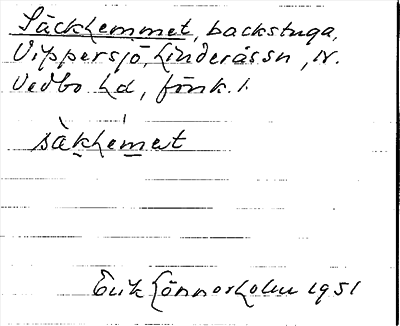 Säckhemmet, backstuga,
Vippersjö, Linderås sn, N.
Vedbo hd, Jönk. l.
sàkhémet
Erik Lönnerholm 1951